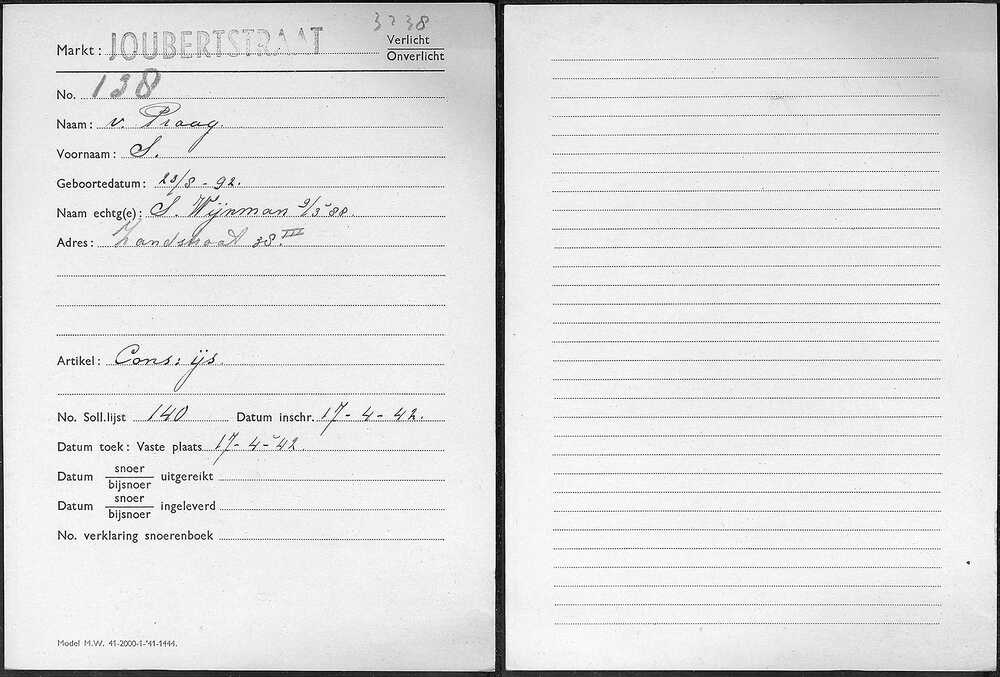 3238
Markt: JOUBERTSTRAAT Verlicht
Onverlicht
No. 138
Naam: v. Praag
Voornaam: S.
Geboortedatum: 23/8 - 92.
Naam echtg(e): S. Wijnman 9/3 '88.
Adres: Zandstraat 38 III
Artikel: Cons: ijs.
No. Soll.lijst 140 Datum inschr. 17-4-42.
Datum toek: Vaste plaats 17-4-'42.
Datum snoer/bijsnoer uitgereikt
Datum snoer/bijsnoer ingeleverd
No. verklaring snoerenboek
Model M.W. 41-2000-1-'41-1444.